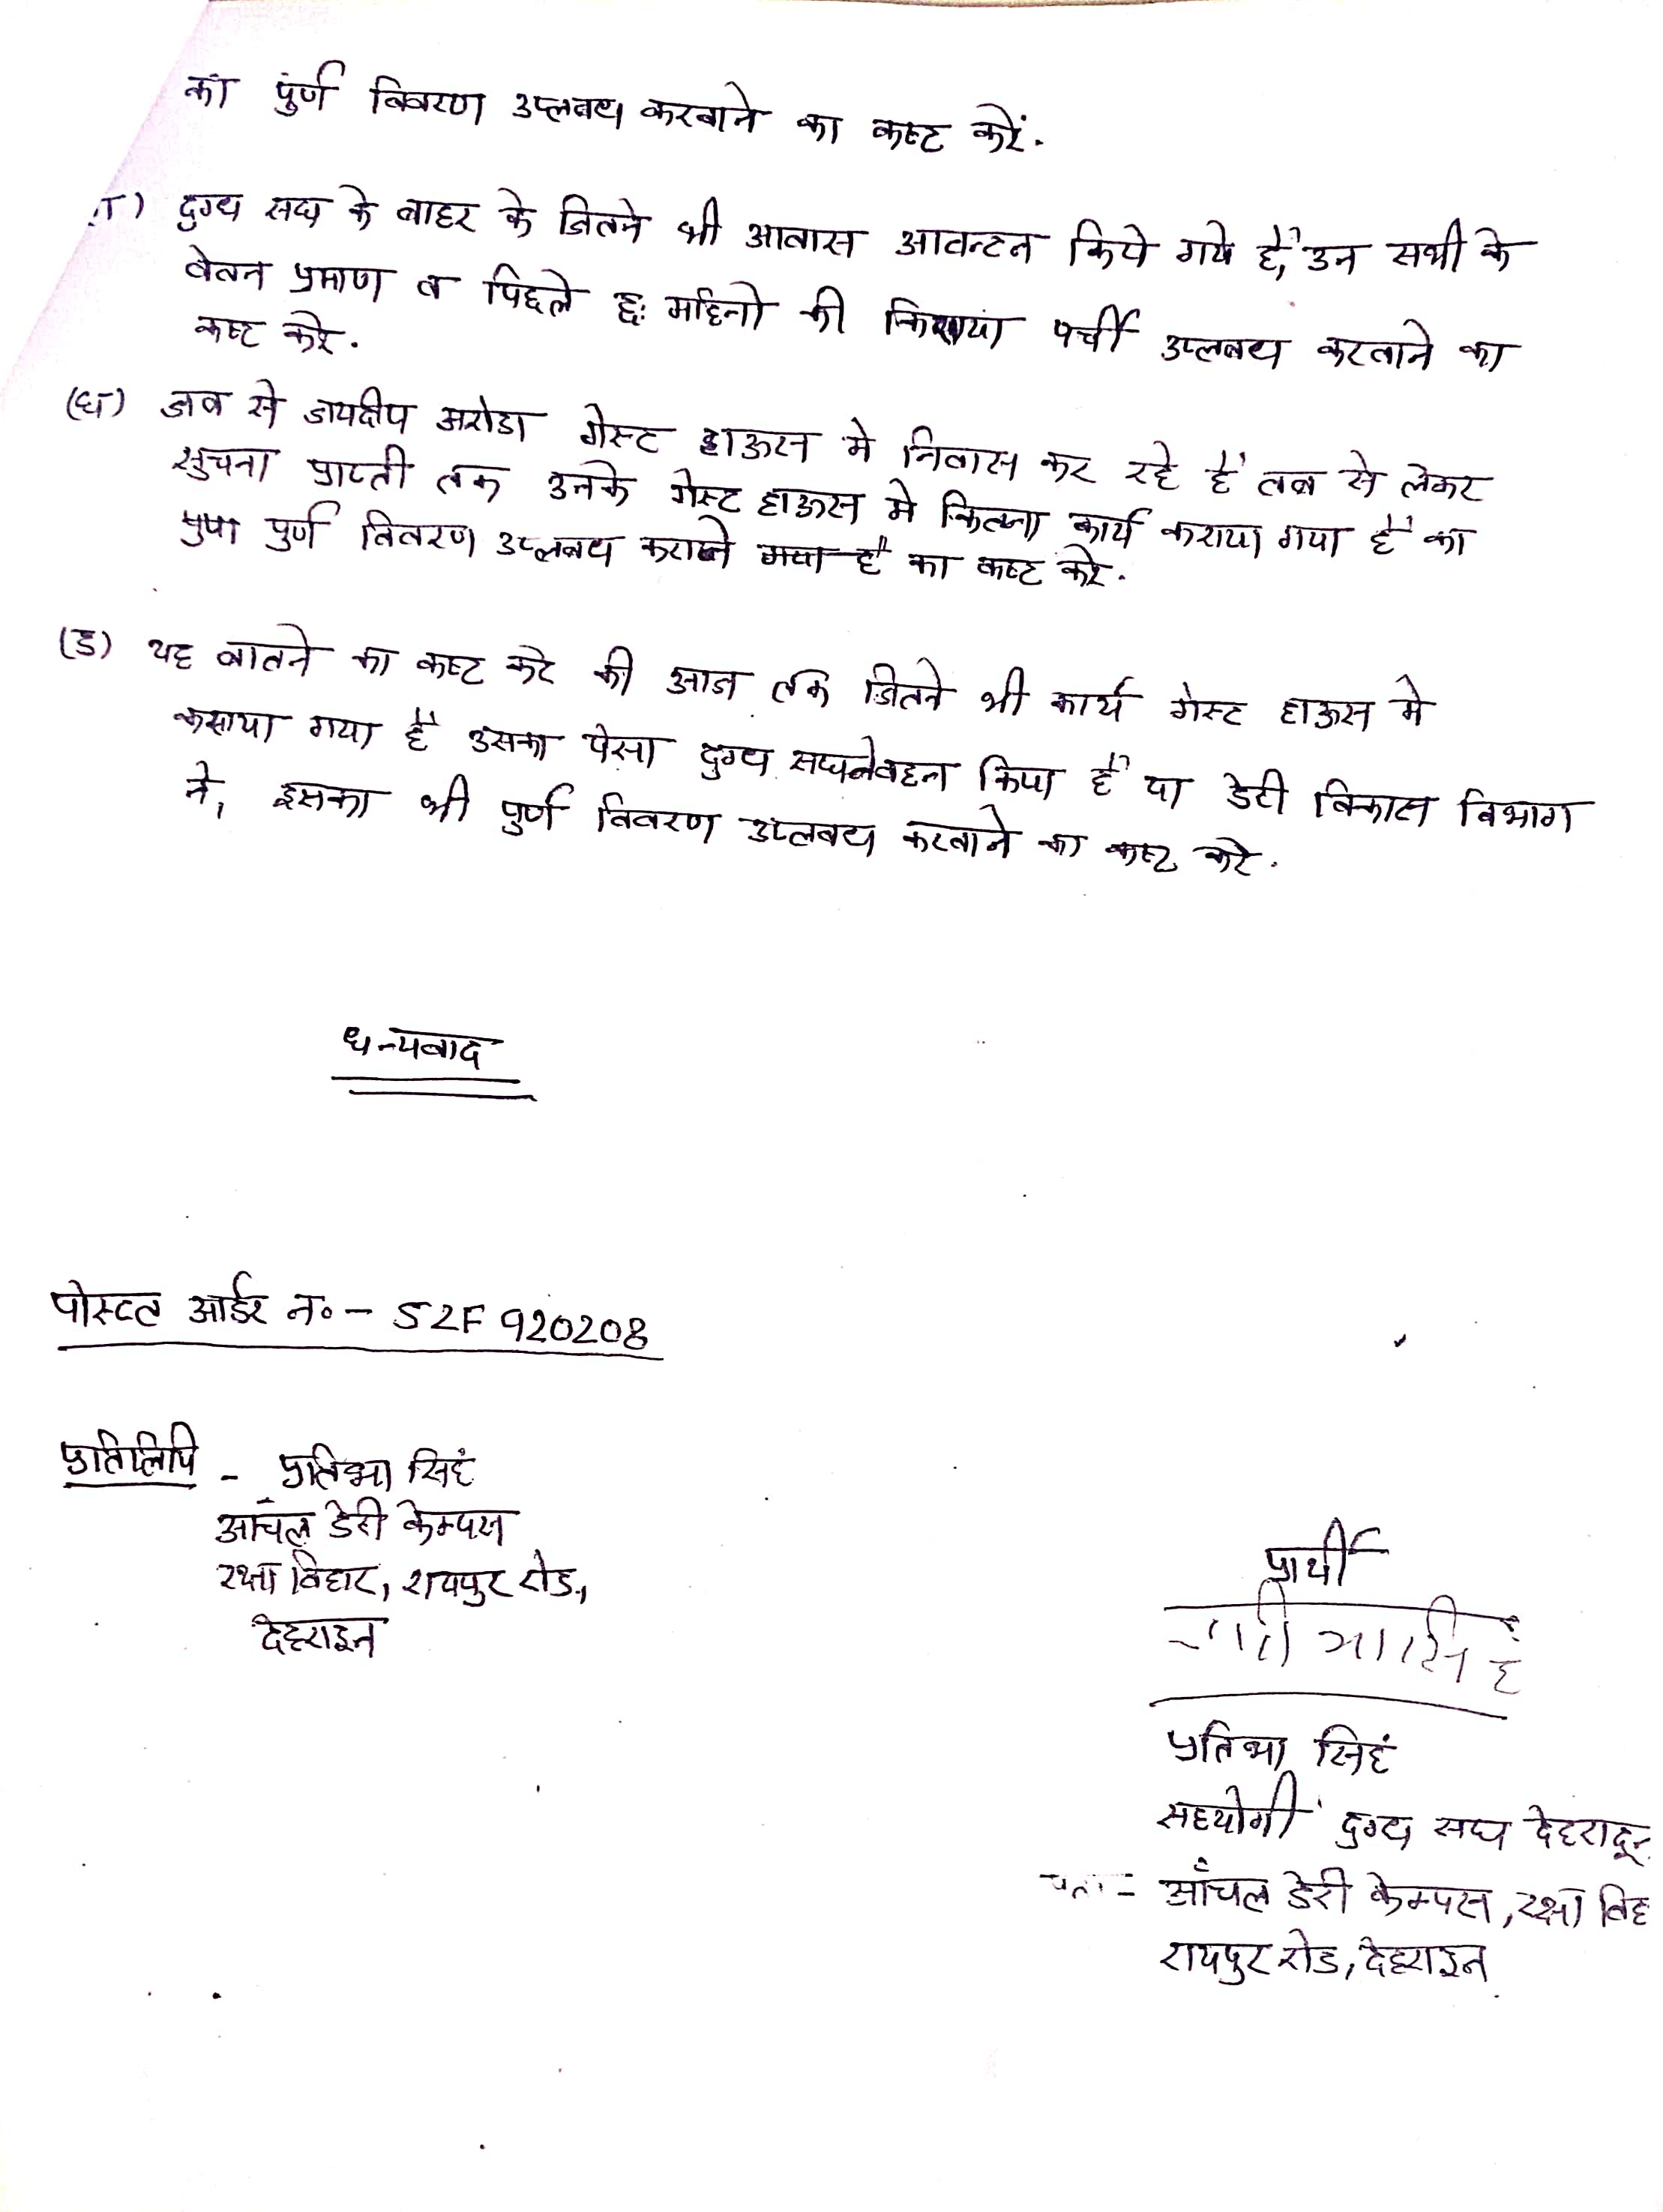 का पुर्ण विवरण उप्लबध करवाने का कष्ट करें.
ग) दुग्ध सघ के बाहर के जितने भी आवास आवन्टन किये गये है, उन सभी के
वेतन प्रमाण व पिछले छः महिनो की किराया पर्ची उप्लबध करवाने का
कष्ट करे.
(घ) जब से जयदीप अरोडा गेस्ट हाऊस मे निवास कर रहे है तब से लेकर
सुचना प्राप्ती तक उनके गेस्ट हाऊस मे कितना कार्य कराया गया है का
पुर्ण विवरण उप्लबध कराने गया है का कष्ट करे.
(ड) यह बातने का कष्ट करे की आज तक जितने भी कार्य गेस्ट हाऊस मे
कराया गया है उसका पेसा दुग्ध सघ ने वहन किया है या डेरी विकास विभाग
ने, इसका भी पुर्ण विवरण उप्लबध करवाने का कष्ट करे.
धन्यवाद
पोस्टल आर्डर न० - 52F 920208
प्रतिलिपि - प्रतिभा सिहं
आँचल डेरी केम्पस
रक्षा विहार, रायपुर रोड,
देहरादून
प्रार्थी
प्रतिभा सिहं
सहयोगी दुग्ध सघ देहरादून
पता - आँचल डेरी केम्पस, रक्षा विह
रायपुर रोड, देहरादून